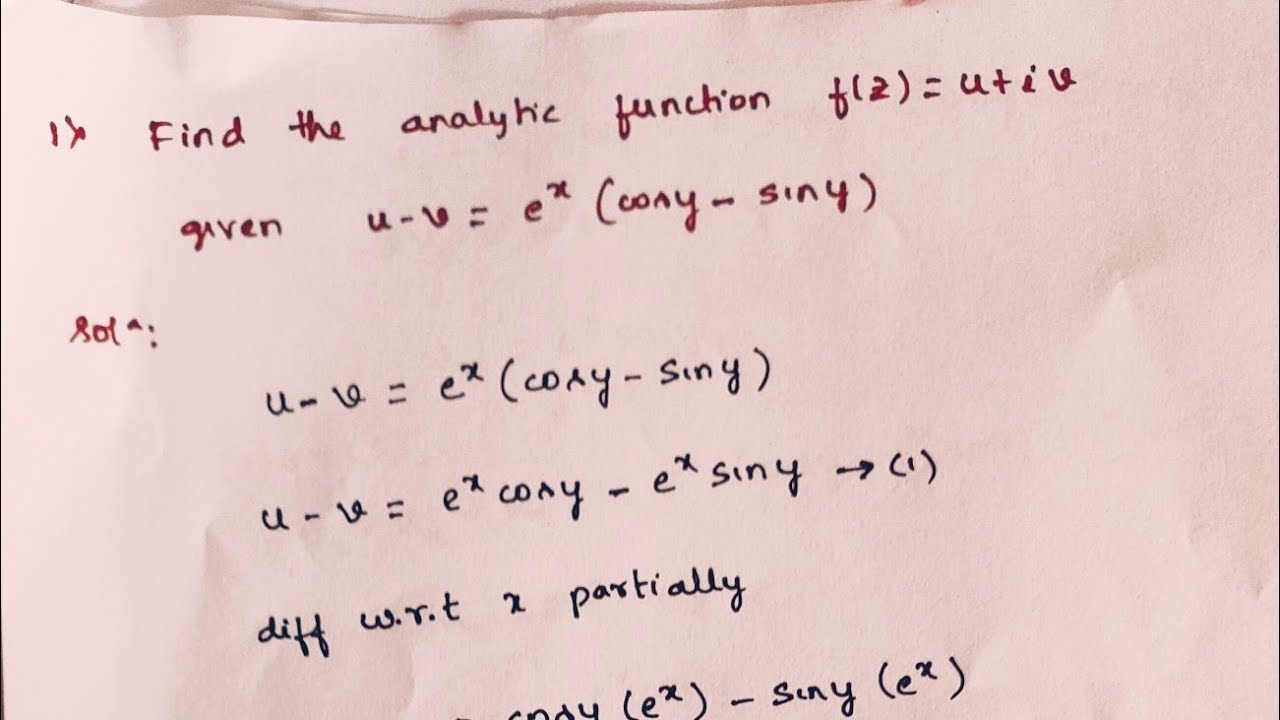 1) Find the analytic function f(z) = u + i v
given u - v = e^x (cosy - siny)
Sol^n:
u - v = e^x (cosy - siny)
u - v = e^x cosy - e^x siny → (1)
diff w.r.t x partially
cosy (e^x) - siny (e^x)